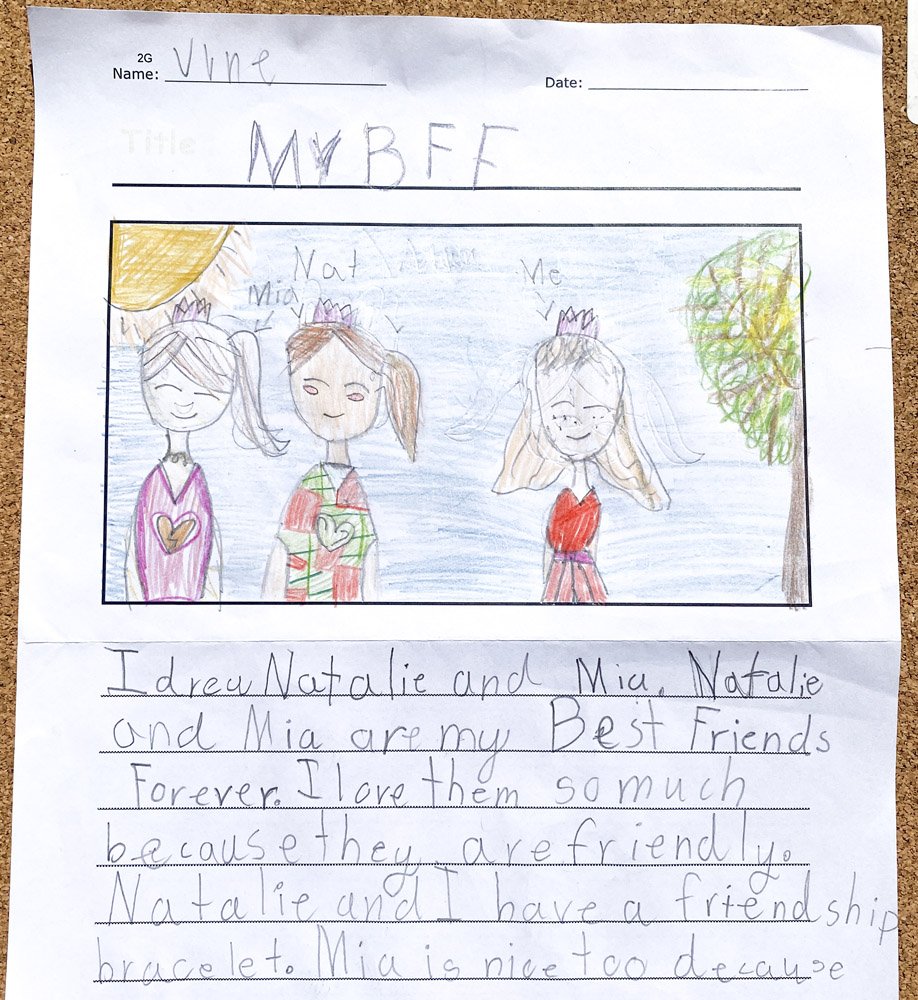 2G
Name: Vine
Date:
Title
My BFF
Nat
Me
Mia
I drew Natalie and Mia. Natalie
and Mia are my Best Friends
Forever. I love them so much
because they are friendly.
Natalie and I have a friendship
bracelet. Mia is nice too decause